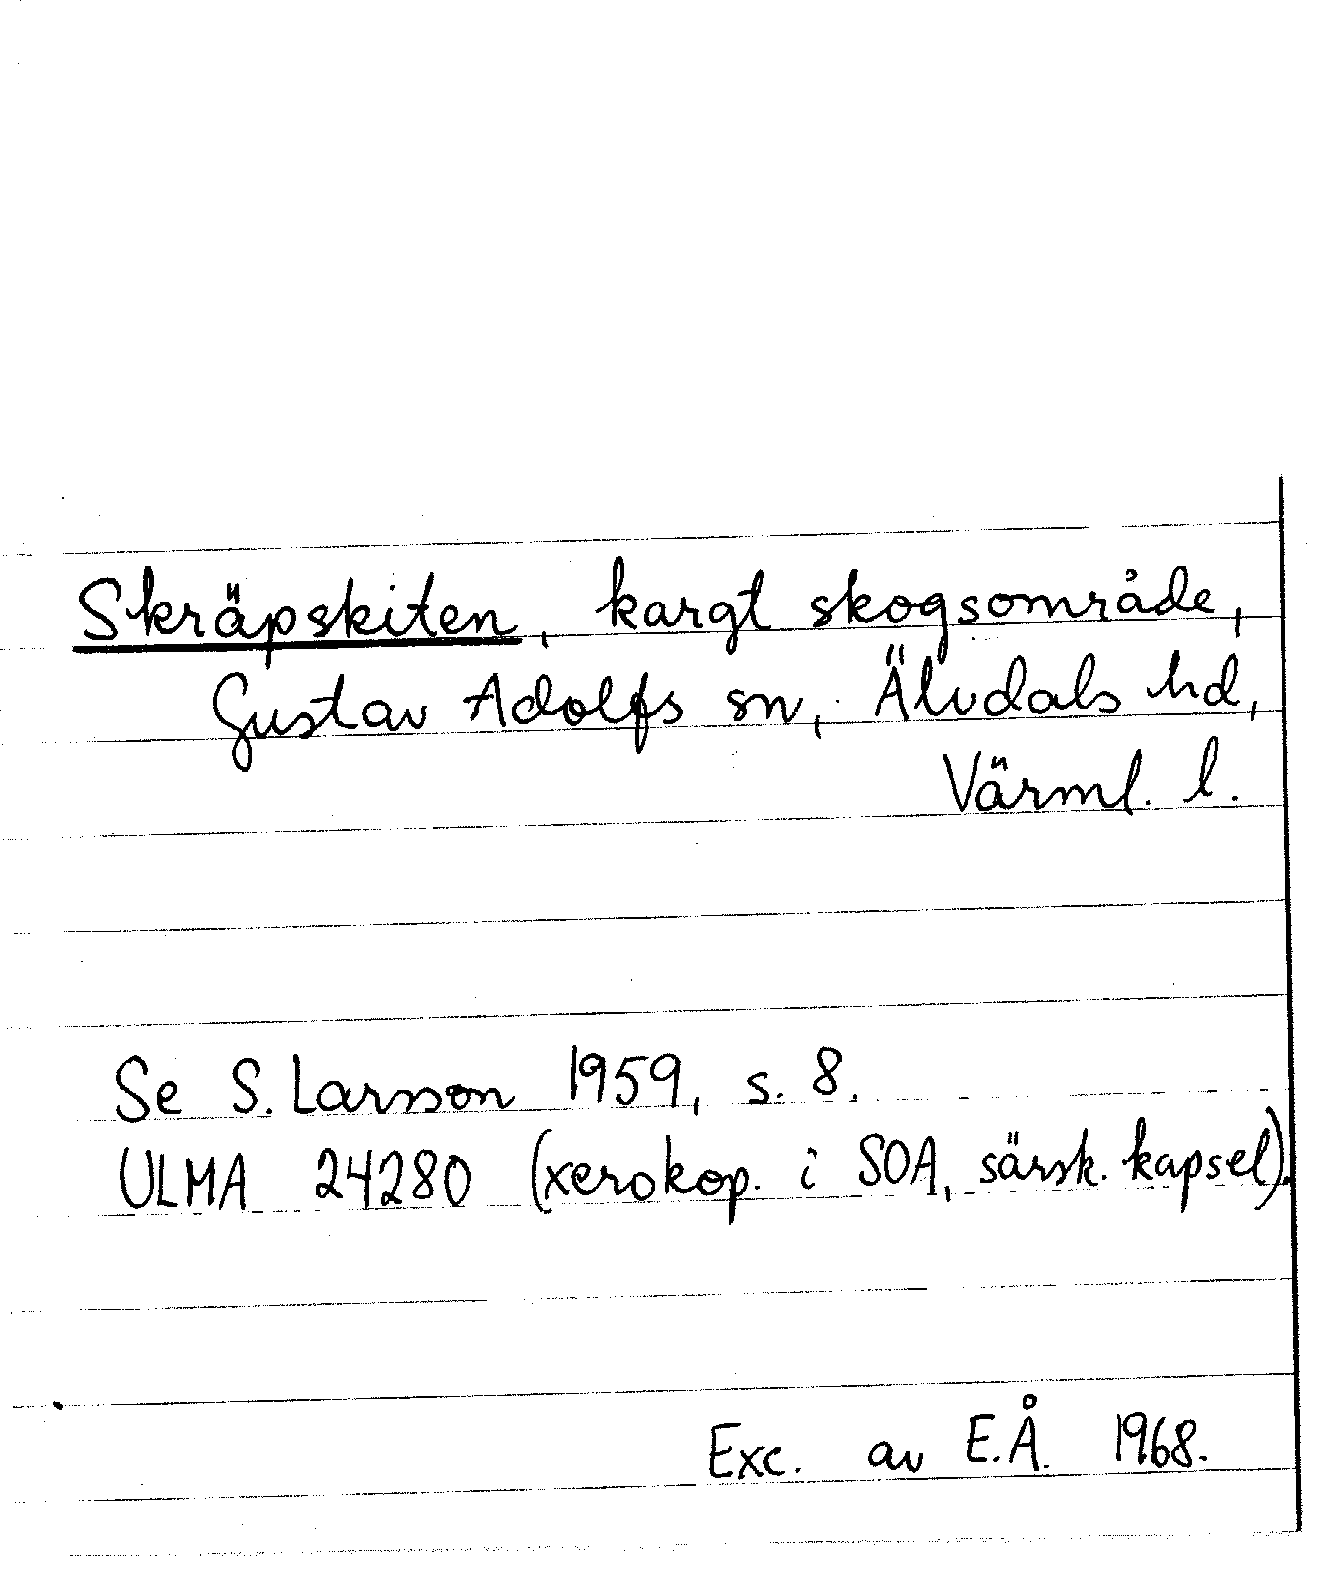 Skräpskiten, kargt skogsområde,
Gustav Adolfs sn, Älvdals hd,
Värml. l.
Se S. Larsson 1959, s. 8.
ULMA 24280 (xerokop. i SOA, särsk. kapsel).
Exc. av E.Å. 1968.